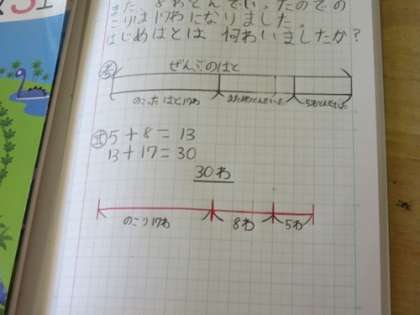 また、8わとんでいったのでの
こりは17わになりました。
はじめはとは 何わいましたか?
図
ぜんぶのはと
のこったはと17わ
またとんでいった
5わとんでいった
式 5+8=13
13+17=30
30わ
のこり17わ 8わ 5わ